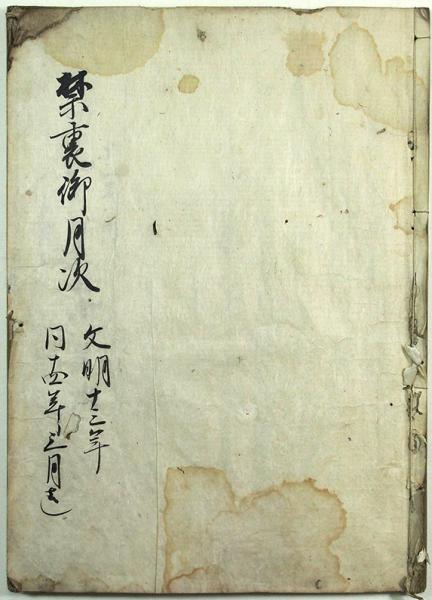 禁裏御月次
文明十二年
同 年三月